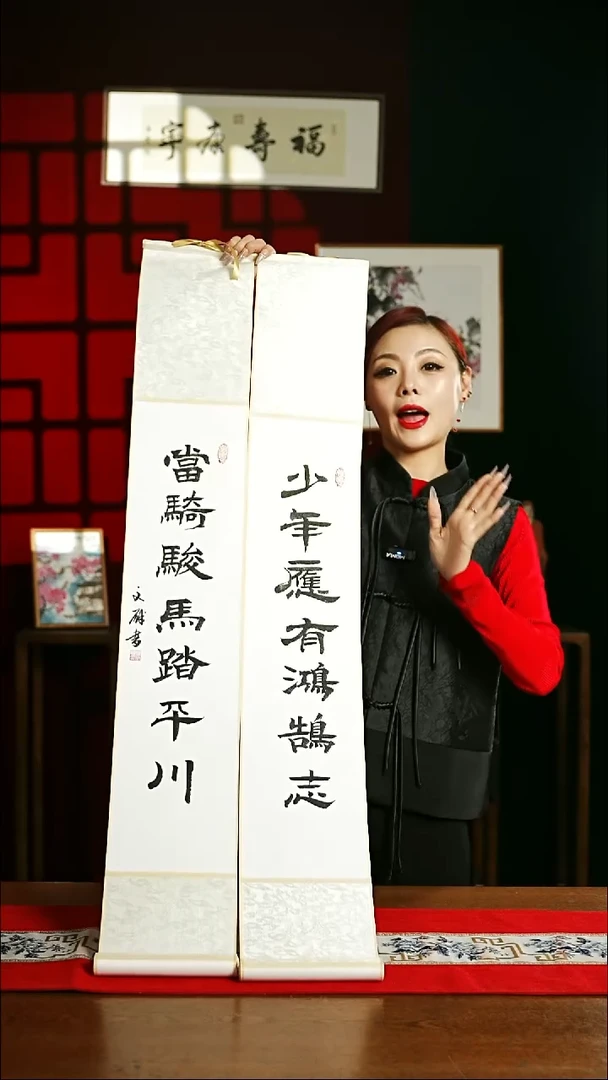 福壽康宁
少年應有鴻鵠志
當騎駿馬踏平川